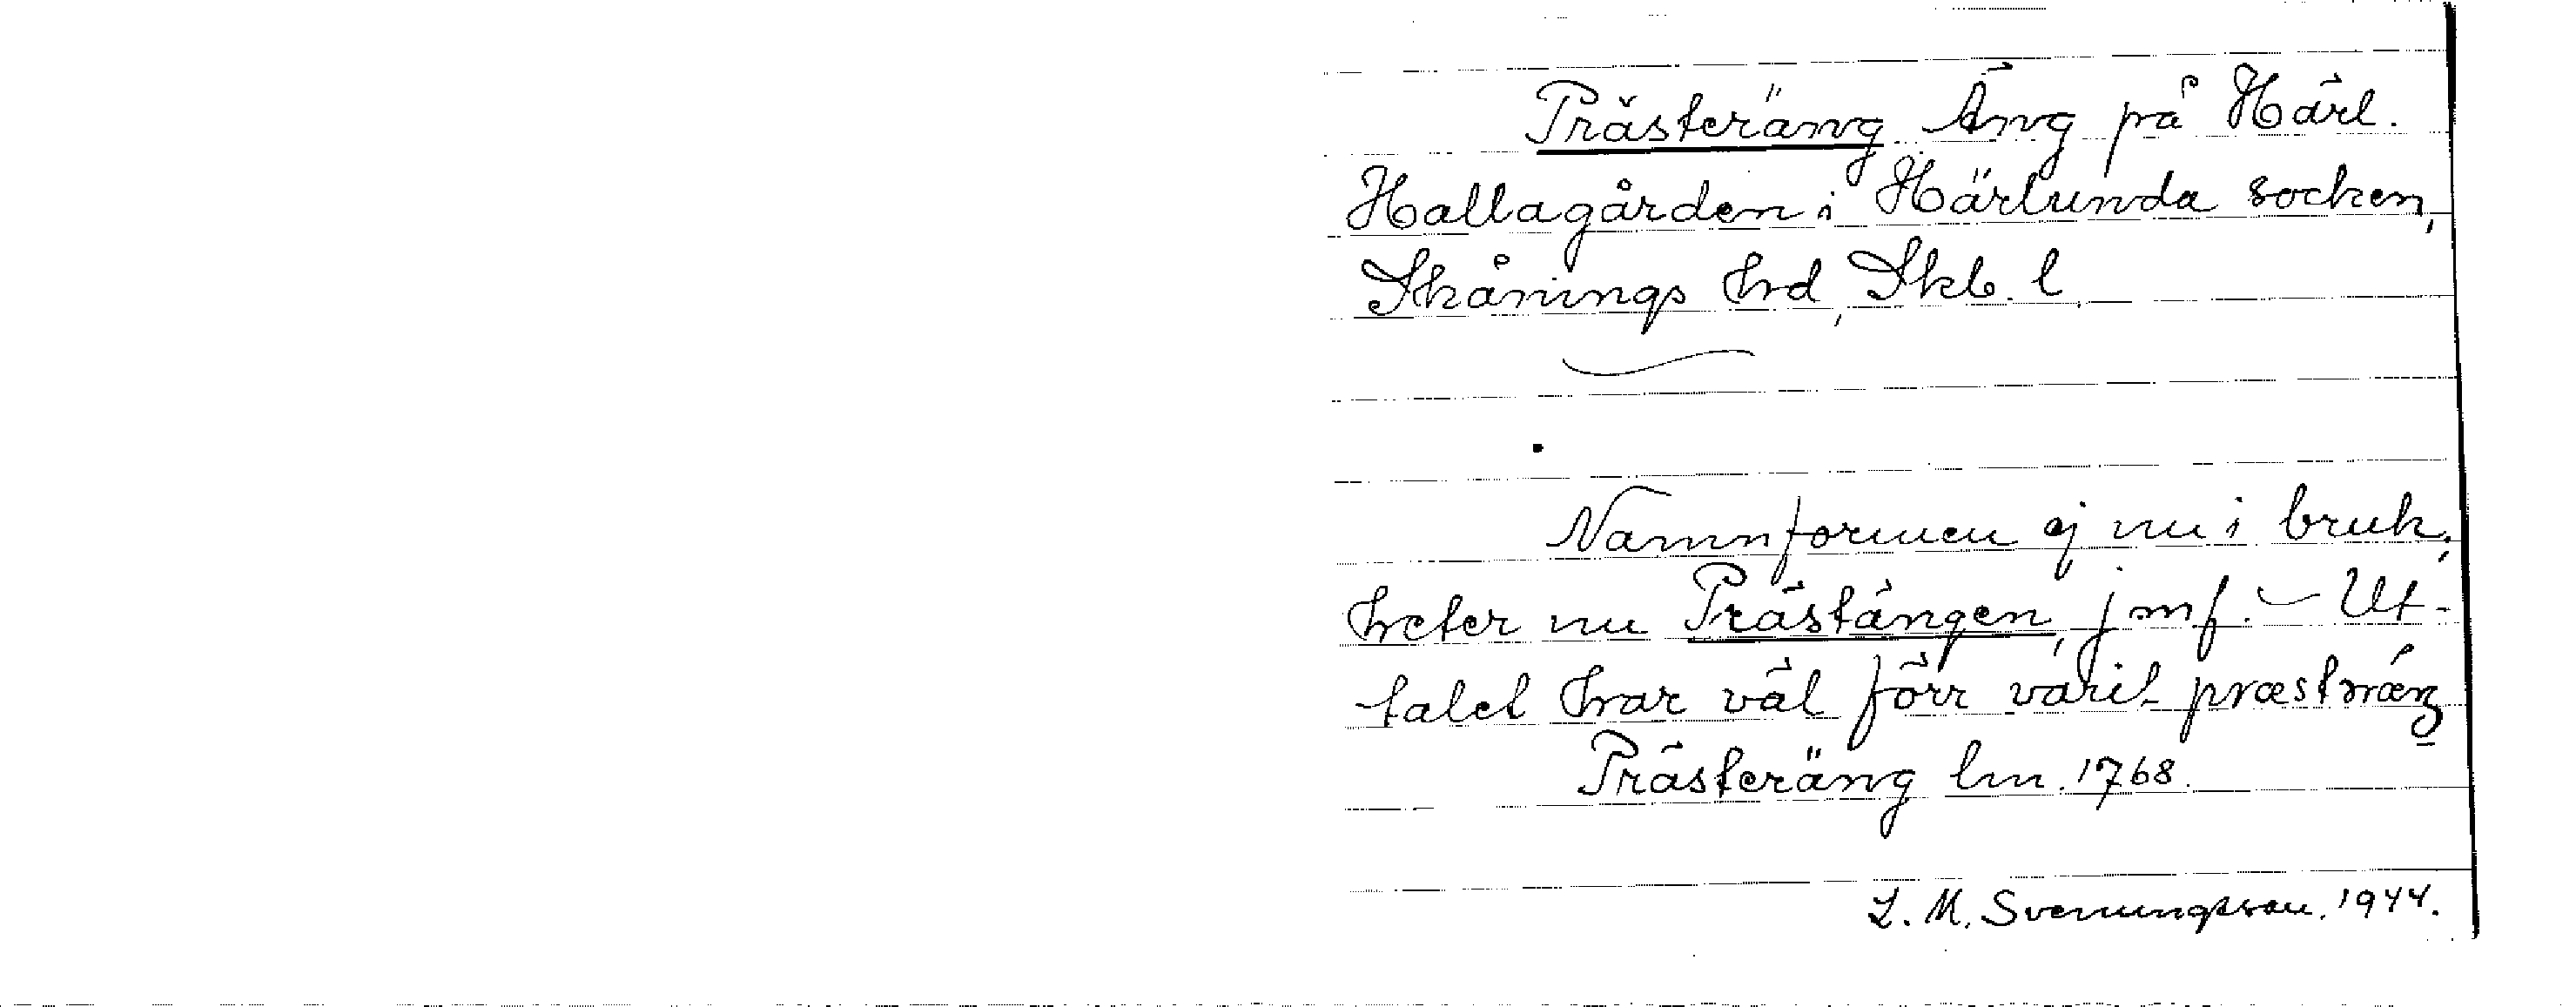 Prästeräng Äng på Härl.
Hallagården i Härlunda socken,
Skånings hrd, Skb. l.
Namnformen ej nu i bruk;
heter nu Prästängen, jmf. – Ut-
talet har väl förr varit
Prästeräng lm. 1768.
L. M. Svenungsson. 1944.